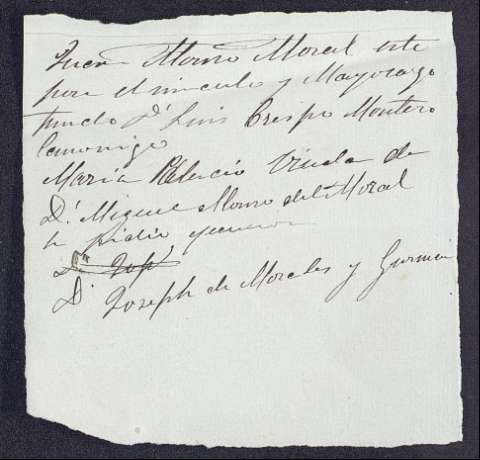 Juan Alonso Moral este
por el vinculo y Mayorazgo
fundo D.n Luis Crespo Montero
Canonigo
Maria Palacio Viuda de
D.n Miguel Alonso del Moral
le pidio ejecucion
D.n Jop
D.n Joseph de Morales y Guzman